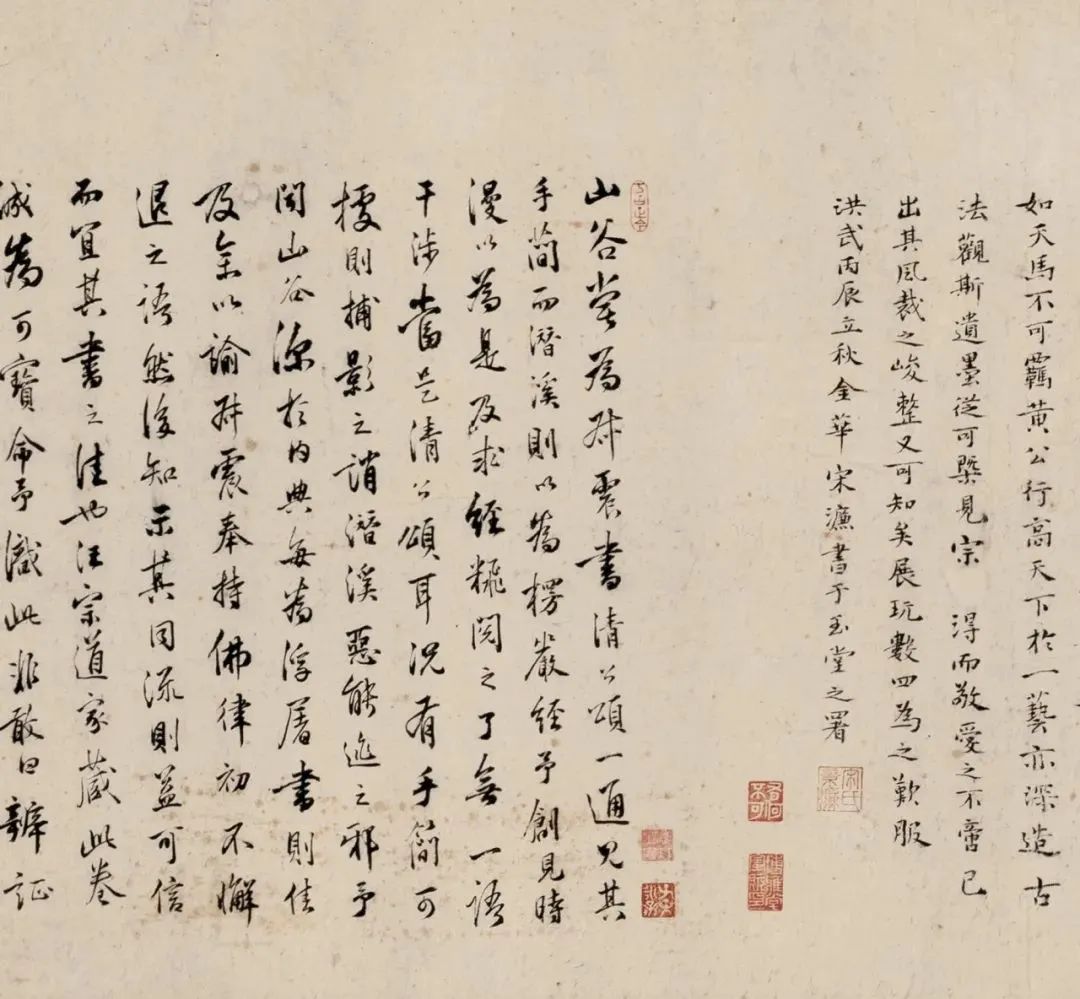 如天馬不可羈黃公行高天下於一藝亦深造古
法觀斯遺墨從可槩見宗 淂而敬愛之不啻已
出其風裁之峻整又可知矣展玩數四為之歎服
洪武丙辰立秋金華宋濂書于玉堂之署
山谷嘗為舜震書清公頌一通見其
手簡而潛溪則以為楞嚴經予創見時
漫以為是及求經粃閱之了無一語
干涉當是清公頌耳況有手簡可
據則捕影之誚潛溪惡能逃之邪予
閱山谷深於內典每為浮屠書則佳
及余以諭舜震奉持佛律初不懈
退之語然後知示其同流則益可信
而宜其書之佳也汪宗道家藏此卷
誠為可寶命予識此非敢曰辯証
宋氏景濂